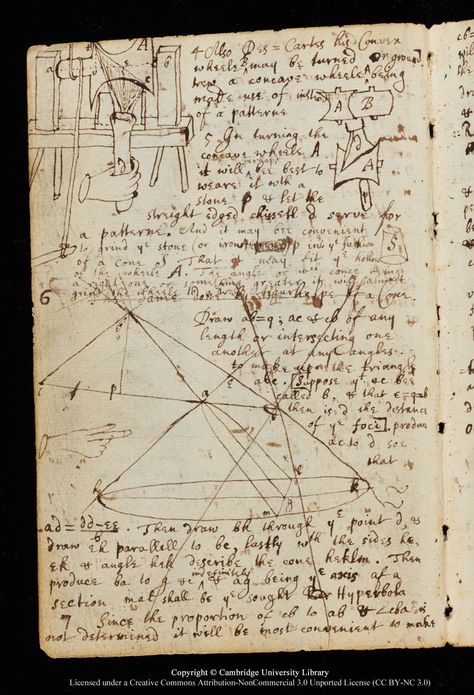 4 Also Des = Cartes his Convex
wheele B may be turned or ground
trew a concave wheele A being
made use of instead
of a patterne
5 In turning the
concave wheele A
it will perhaps bee best to
weare it with a
stone p & let the
streight edged chissell d serve for
a patterne. And it may bee convenient
to grind ye stone (or iron) p into ye fashion
of a cone. That it may fit ye hollow
of the wheele A. The angle of wch cone being
a right one or something greater it will
grind the wheele
6
Draw ab=q; ac & cb of any
length or intersecting one
another at any angles
to make up the triangle
abc. [Suppose yt ac bee
called b, & that e=qab
then is d the distance
of ye foci]. produce
ac to d soe
that
ad = dd-ee/b. Then draw bk through ye point d &
draw ek parallell to be, lastly wth the sides he
ek & angle hek describe the cone heklm. Then
produce ba to g indefinitely & ag being ye axis of a
section mal shall be ye sought Hyperbola
7 Since the proportion of cb to ab & <cba is
not determined it will be most convenient to make
Copyright © Cambridge University Library
Licensed under a Creative Commons Attribution-NonCommercial 3.0 Unported License (CC BY-NC 3.0)